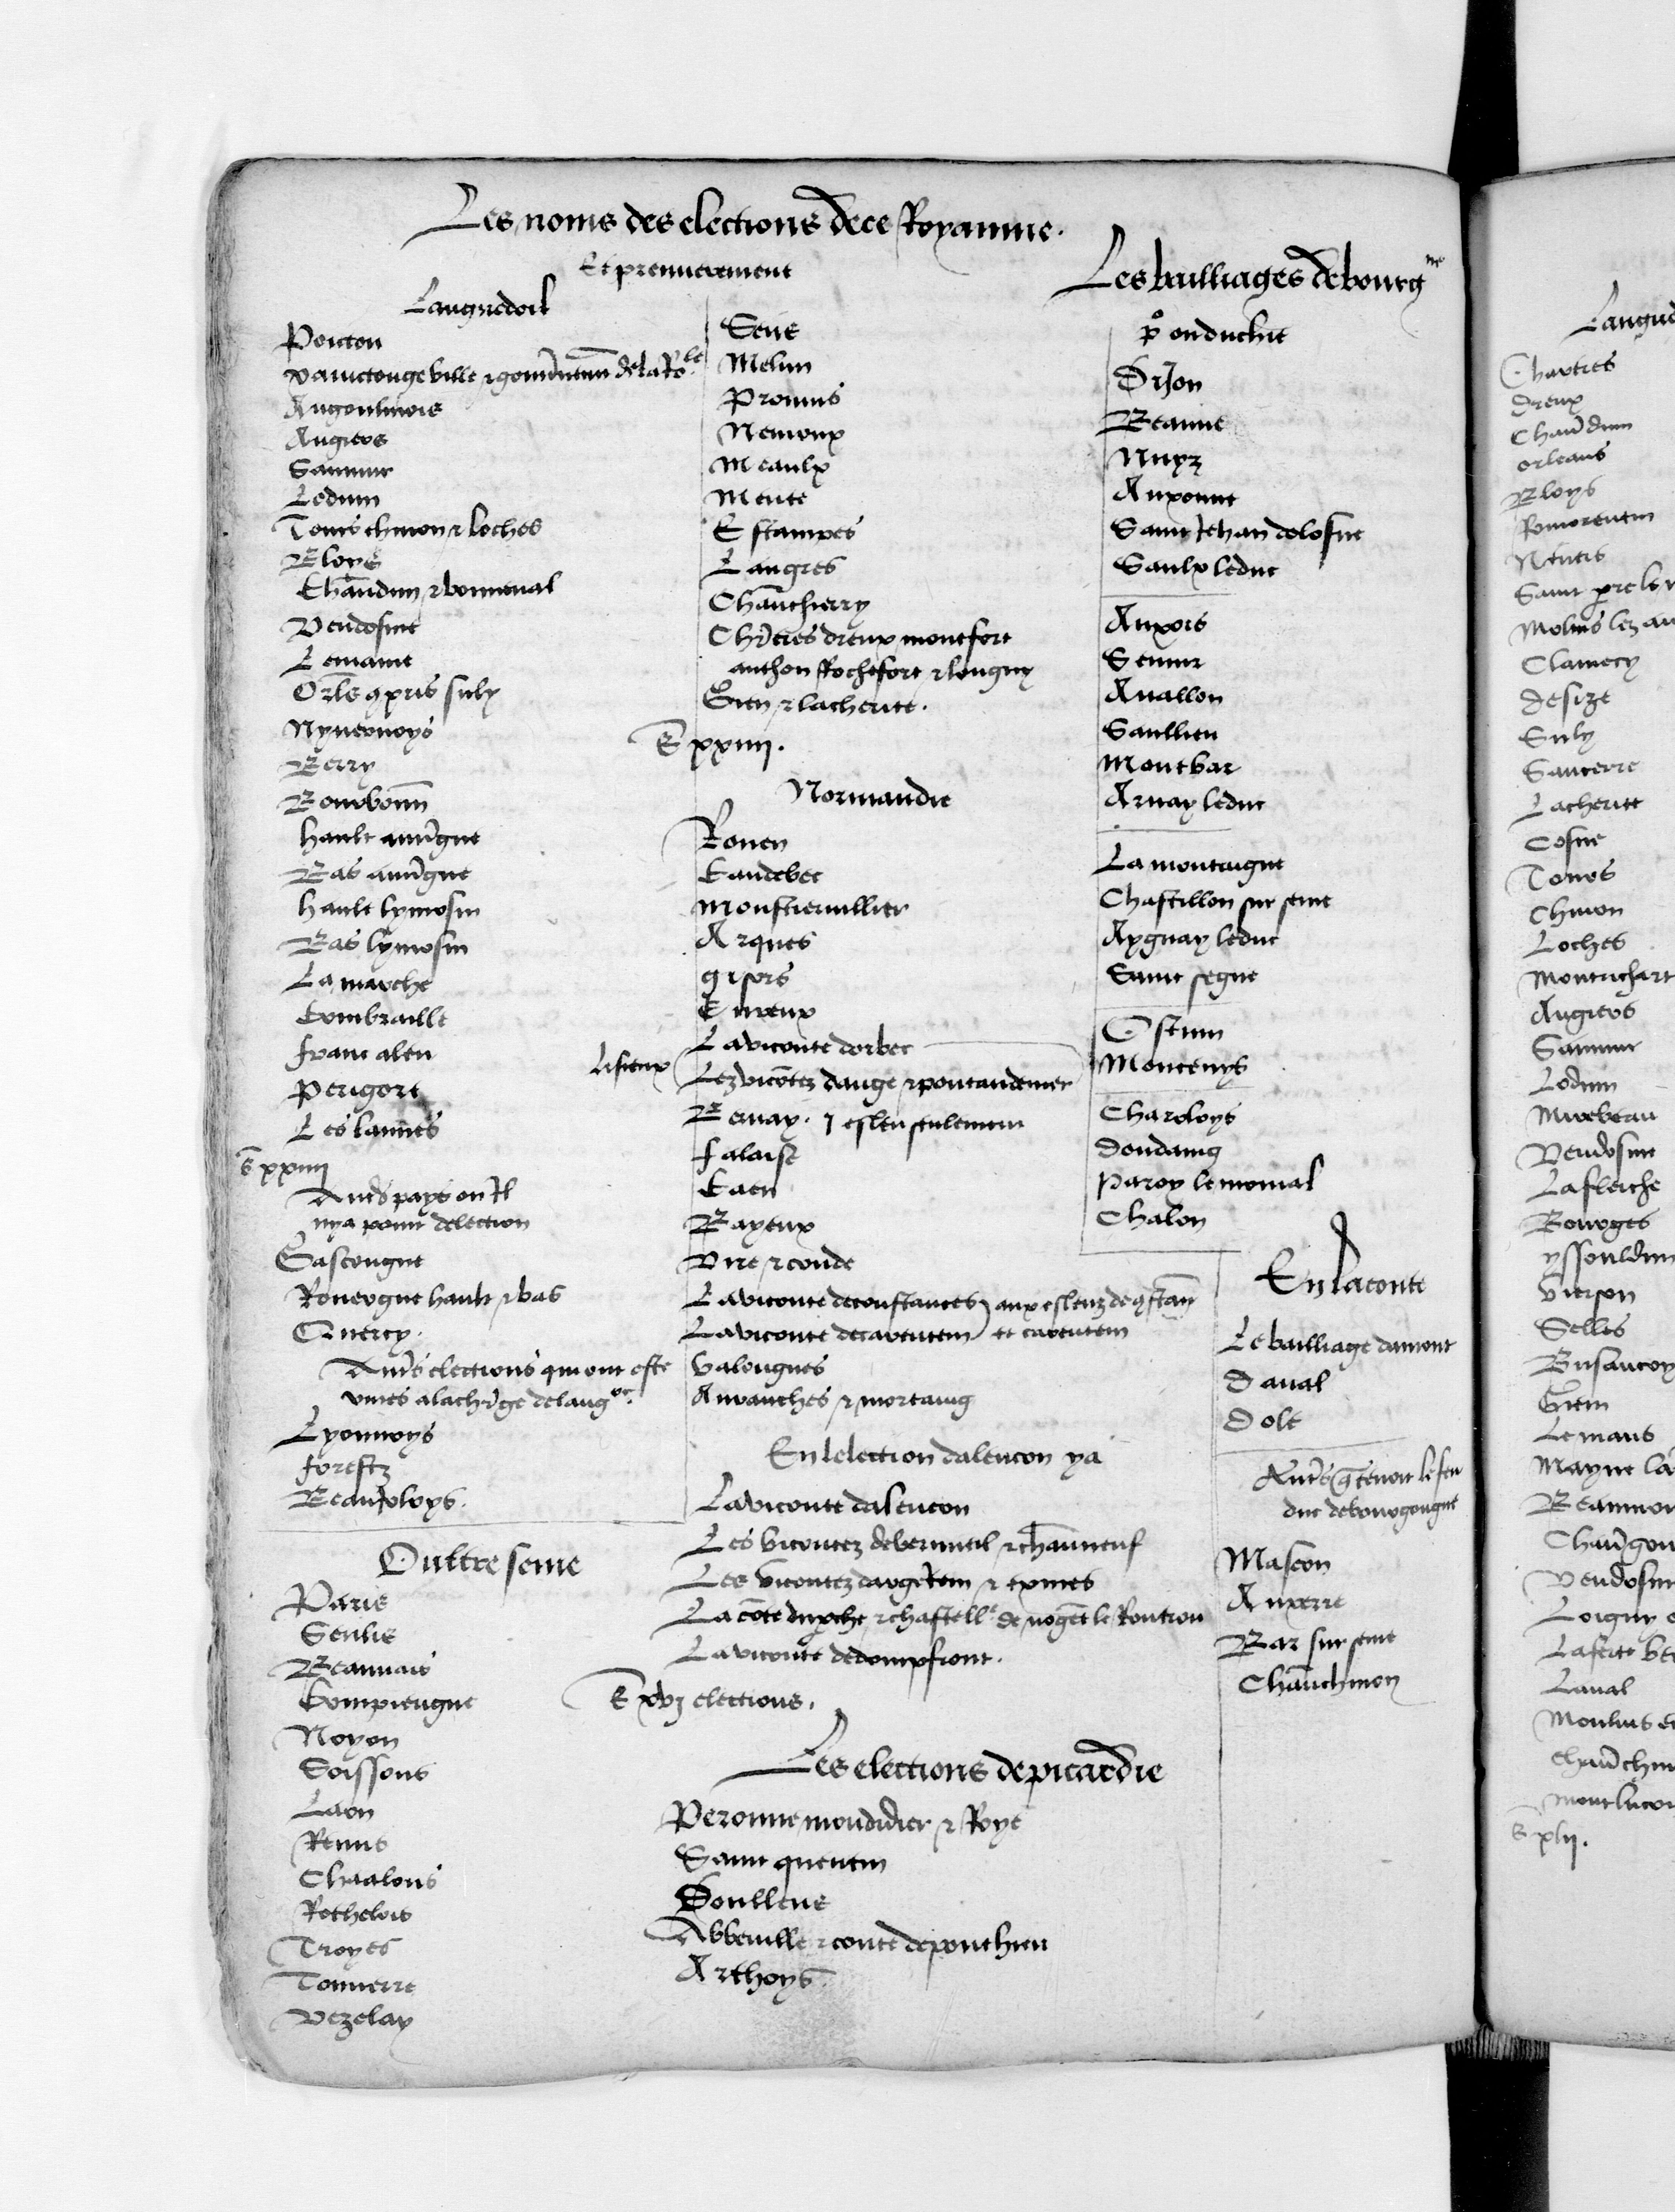 Les noms des elections de ce Royaume.
Et premierement
Languedoil
Poictou
Xainctonge ville & gouvernement de la Ro.le
Angoulmois
Angiers
Saumur
Lodun
Tours chinon & loches
Bloys
Chaudun & bonneval
Vendosme
Lemaine
Orle gpris suly
Nyvernoys
Berry
Bourbonn
hault auvgne
Bas auvgne
hault lymosin
Bas lymosin
La marche
Combraille
franc aleu
Perigort
Les lannes
S xxiiii
Autres pays ou Il
nya point delection
Gascongne
Rouergne hault & bas
Quercy.
Autres elections qui ont este
unies a la chrge de lang.oc
Lyonnoys
forestz
Beaujoloys.
Oultre seine
Paris
Senlis
Beauvais
Compiengne
Noyon
Soissons
Laon
Reims
Chaalons
Rethelois
Troyes
Tonnerre
Vezelay
Sens
Melun
Provins
Nemoux
Meaulx
Mente
Estampes
Langres
Chauthierry
Chrtres dreux montfort
anthon Rochefort & longny
Gien & lacherite.
S xxiiii.
Normandie
Rouen
Caudebec
Monstiervillier
Arques
gisors
Evreux
La viconte dorbec
Lisieux
Lez vicontez dauge & pontaudemer
Bernay. j esleu seulement
falaise
Caen
Bayeux
Vire & conde
La viconte de constances aux esleuz de gstan
La viconte de carentem et carentem
Valongnes
Avranches & mortaing
En lelection dalencon ya
La viconte dalencon
Les vicontez de verneuil & chauneuf
Les vicontez dargenten & exmes
La conte du pche & chastell.e de nogent le Routrou
La viconte de dompfront.
S xvj elections.
Les elections de picardie
Peronne mondidier & Roye
Saint quentin
Doullens
Abbeville & conte de ponthieu
Arthoys.
Les bailliages de bourgne
po en duche
Dijon
Beaune
Nuyz
Auxonne
Saint Jehan de losne
Saulx leduc
Auxois
Semur
Avallon
Saullieu
Montbar
Arnay leduc
La montaigne
Chastillon sur seine
Aygnay leduc
Saint segne
Ostum
Moncenys
Charoloys
dondaing
Paroy le monial
Chalon
En la conte
Le bailliage damont
Daval
Dole
Autres q tenoit le feu
duc de bourgongne
Mascon
Auxerre
Bar sur seine
Chauchinon
Langued
Chartres
dreux
Chaudun
orleans
Bloys
Romorentin
Nevers
Saint pre le
Molins lez an
Clamecy
desize
Suly
Sancerre
Lacherite
Cosne
Tours
Chinon
Loches
Montrichart
Angiers
Saumur
Lodun
Mirebeau
Vendosme
Lafleiche
Bourges
yssouldun
Vierson
Selles
Busancoy
Gien
Le mans
Mayne la
Beaumon
Chaugon
Vendosm
Loigny
Laferte be
Laval
Moulins
Chauchin
Montlucon
S xlij.